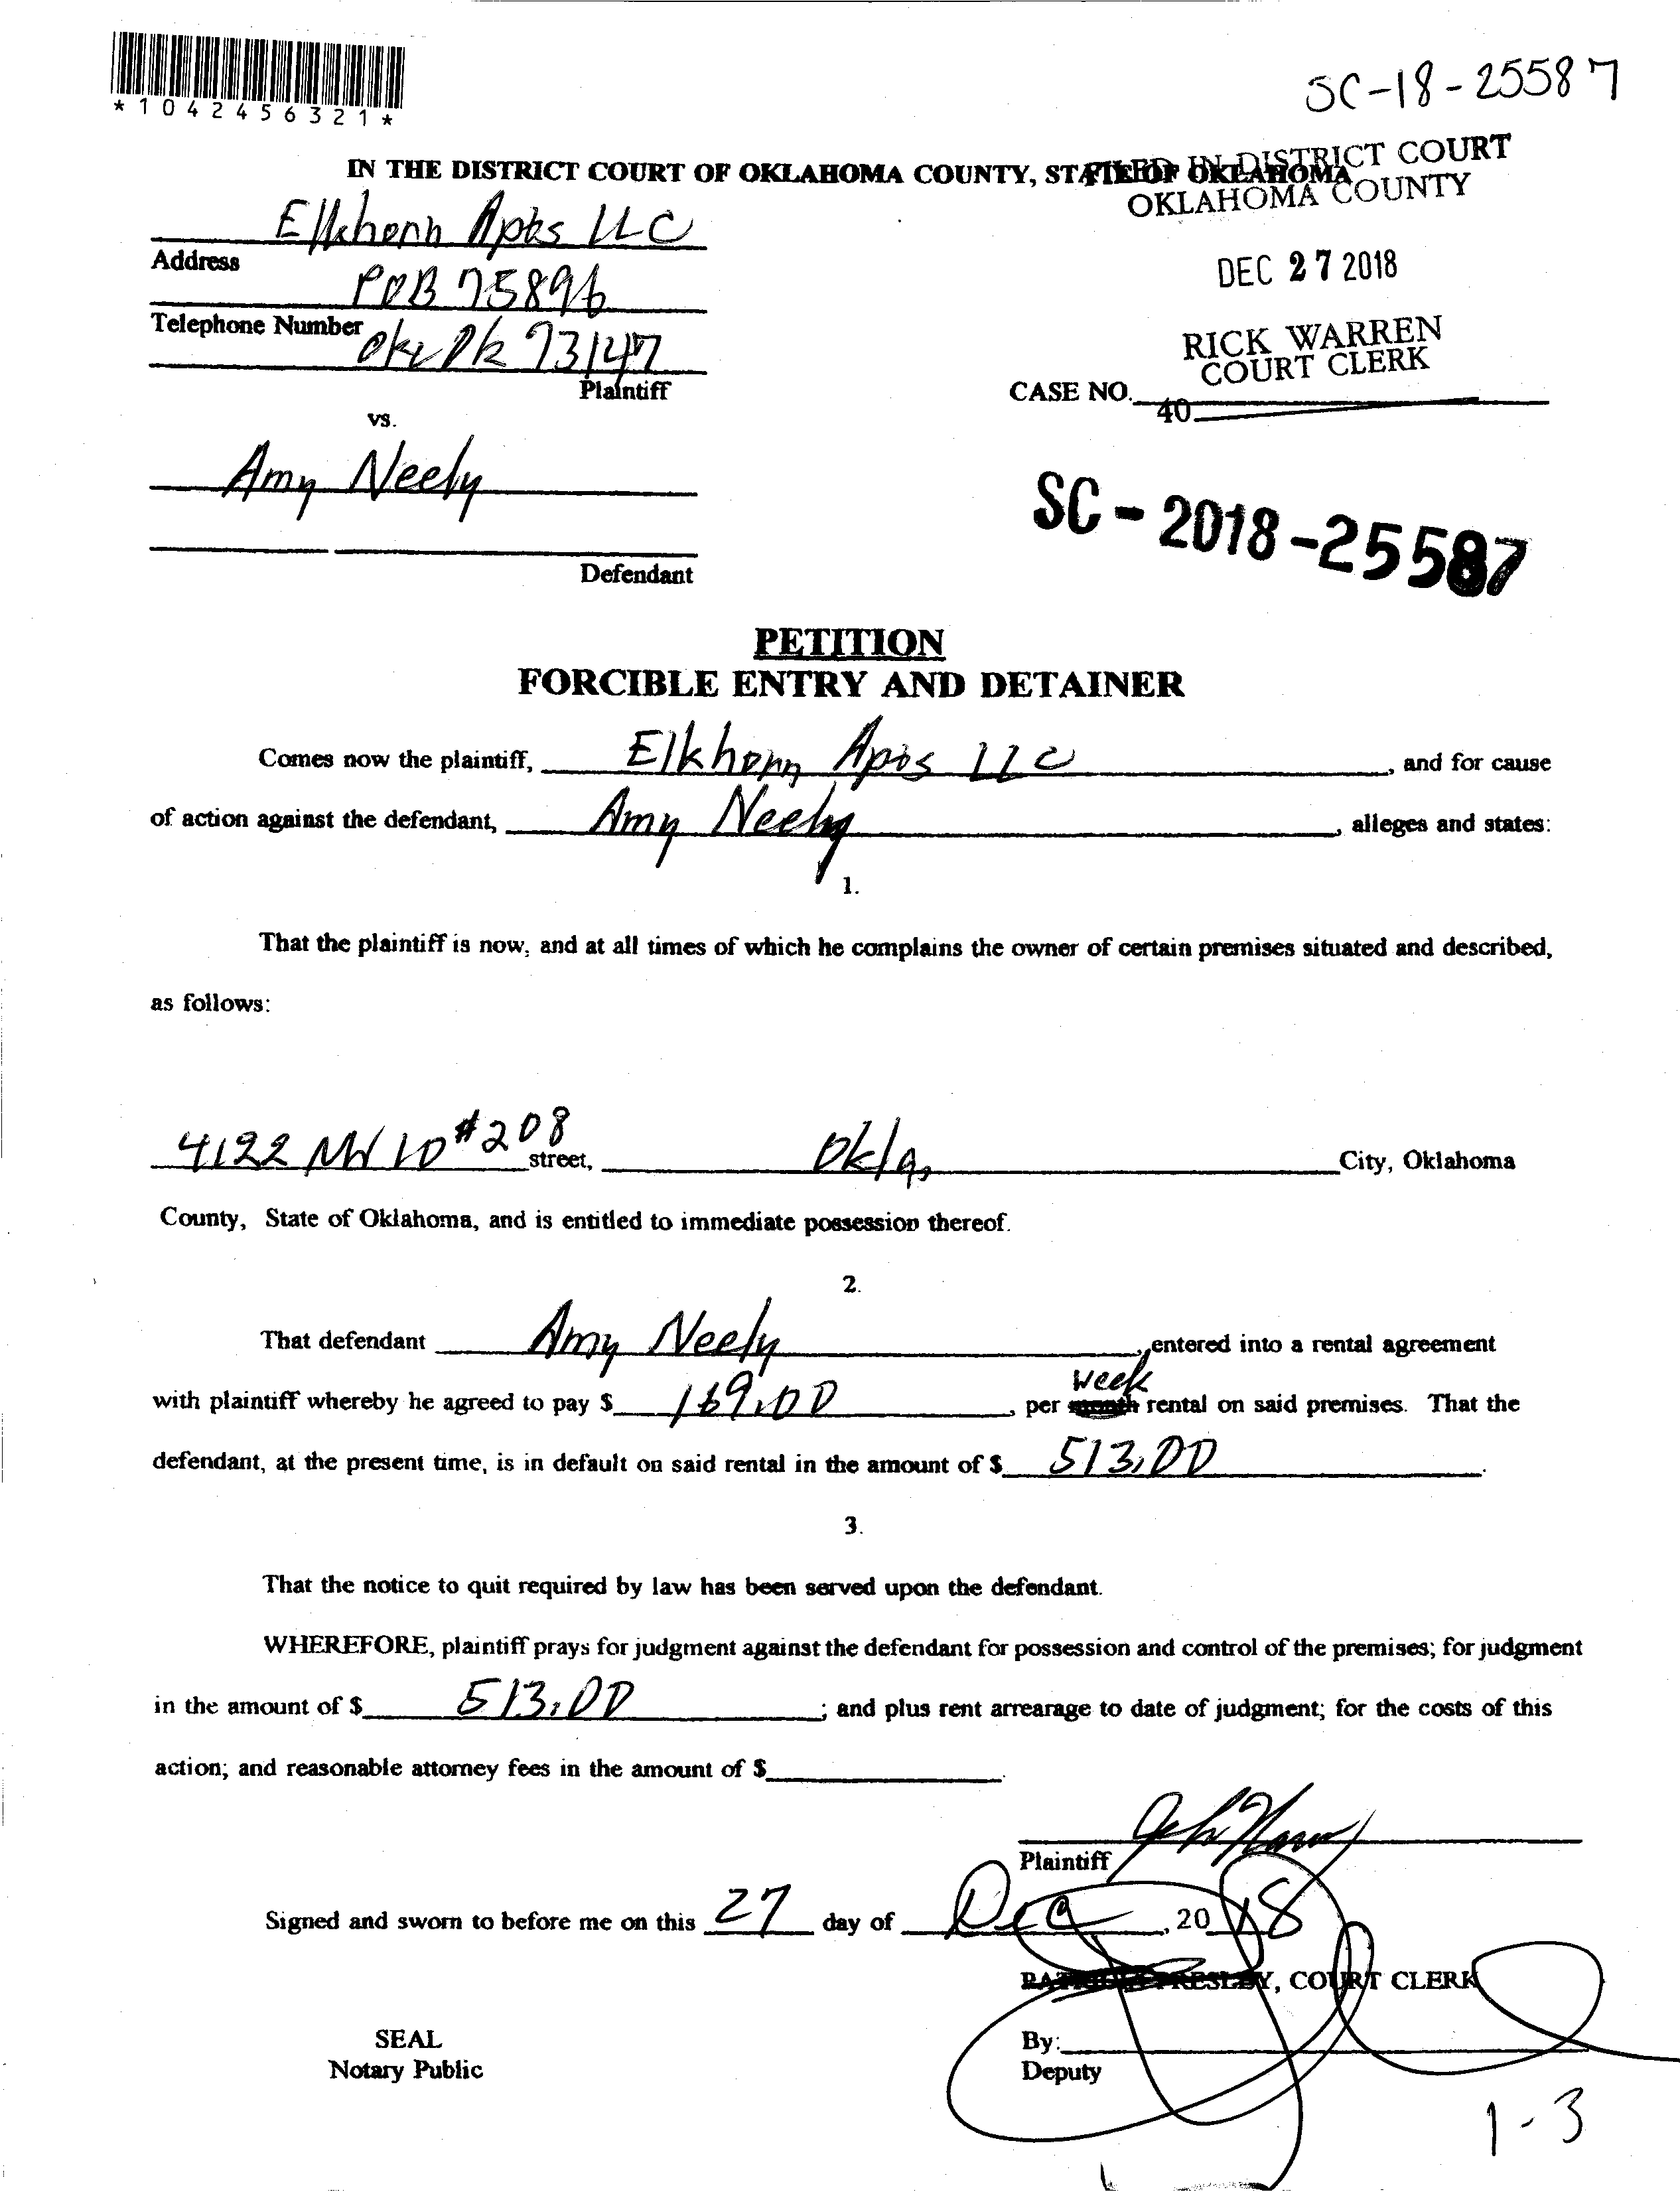 *1042456321*
SC-18-25587
IN THE DISTRICT COURT OF OKLAHOMA COUNTY, STATE OF OKLAHOMA
FILED IN DISTRICT COURT
OKLAHOMA COUNTY
Elkhorn Apts LLC
Address
POB 75896
DEC 27 2018
Telephone Number
Okc Ok 73147
RICK WARREN
COURT CLERK
Plaintiff
CASE NO.
40
vs.
Amy Neely
SC-2018-25587
Defendant
PETITION
FORCIBLE ENTRY AND DETAINER
Comes now the plaintiff, Elkhorn Apts LLC, and for cause
of action against the defendant, Amy Neely, alleges and states:
1.
That the plaintiff is now, and at all times of which he complains the owner of certain premises situated and described,
as follows:
4122 NW 10 #208 street, Okla, City, Oklahoma
County, State of Oklahoma, and is entitled to immediate possession thereof.
2.
That defendant Amy Neely, entered into a rental agreement
week
with plaintiff whereby he agreed to pay $ 169.00, per month rental on said premises. That the
defendant, at the present time, is in default on said rental in the amount of $ 513.00.
3.
That the notice to quit required by law has been served upon the defendant.
WHEREFORE, plaintiff prays for judgment against the defendant for possession and control of the premises; for judgment
in the amount of $ 513.00; and plus rent arrearage to date of judgment; for the costs of this
action; and reasonable attorney fees in the amount of $
Plaintiff
Signed and sworn to before me on this 27 day of Dec, 2018
PRESLEY, COURT CLERK
SEAL
Notary Public
By:
Deputy
1-3